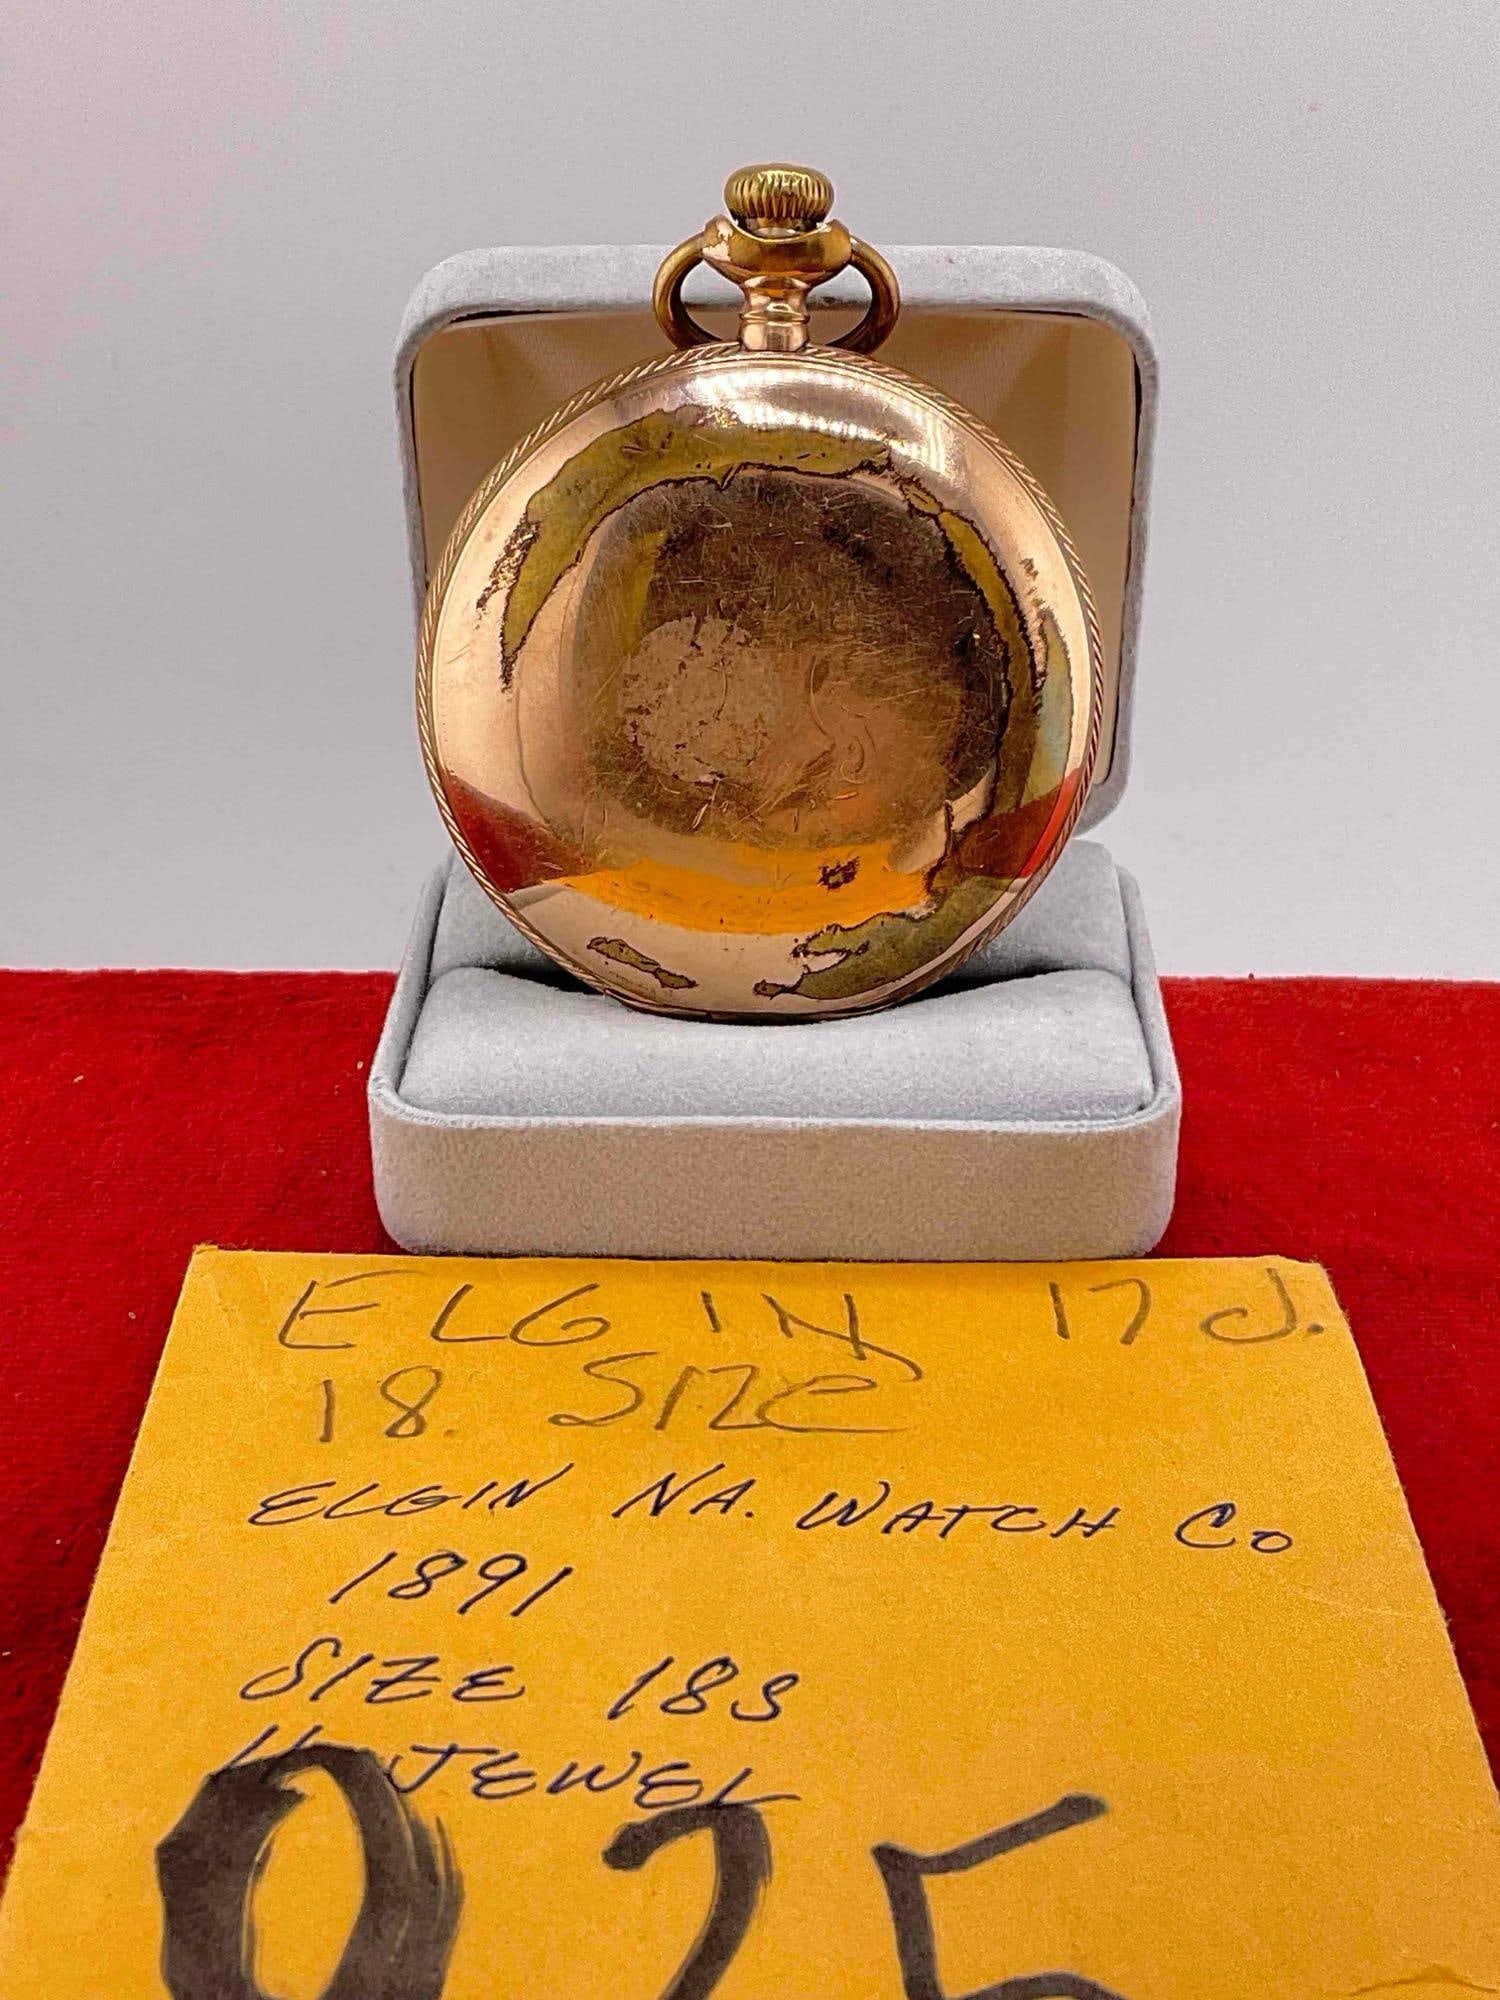 ELGIN 17 J.
18. SIZE
ELGIN NA. WATCH CO
1891
SIZE 18S
JEWEL